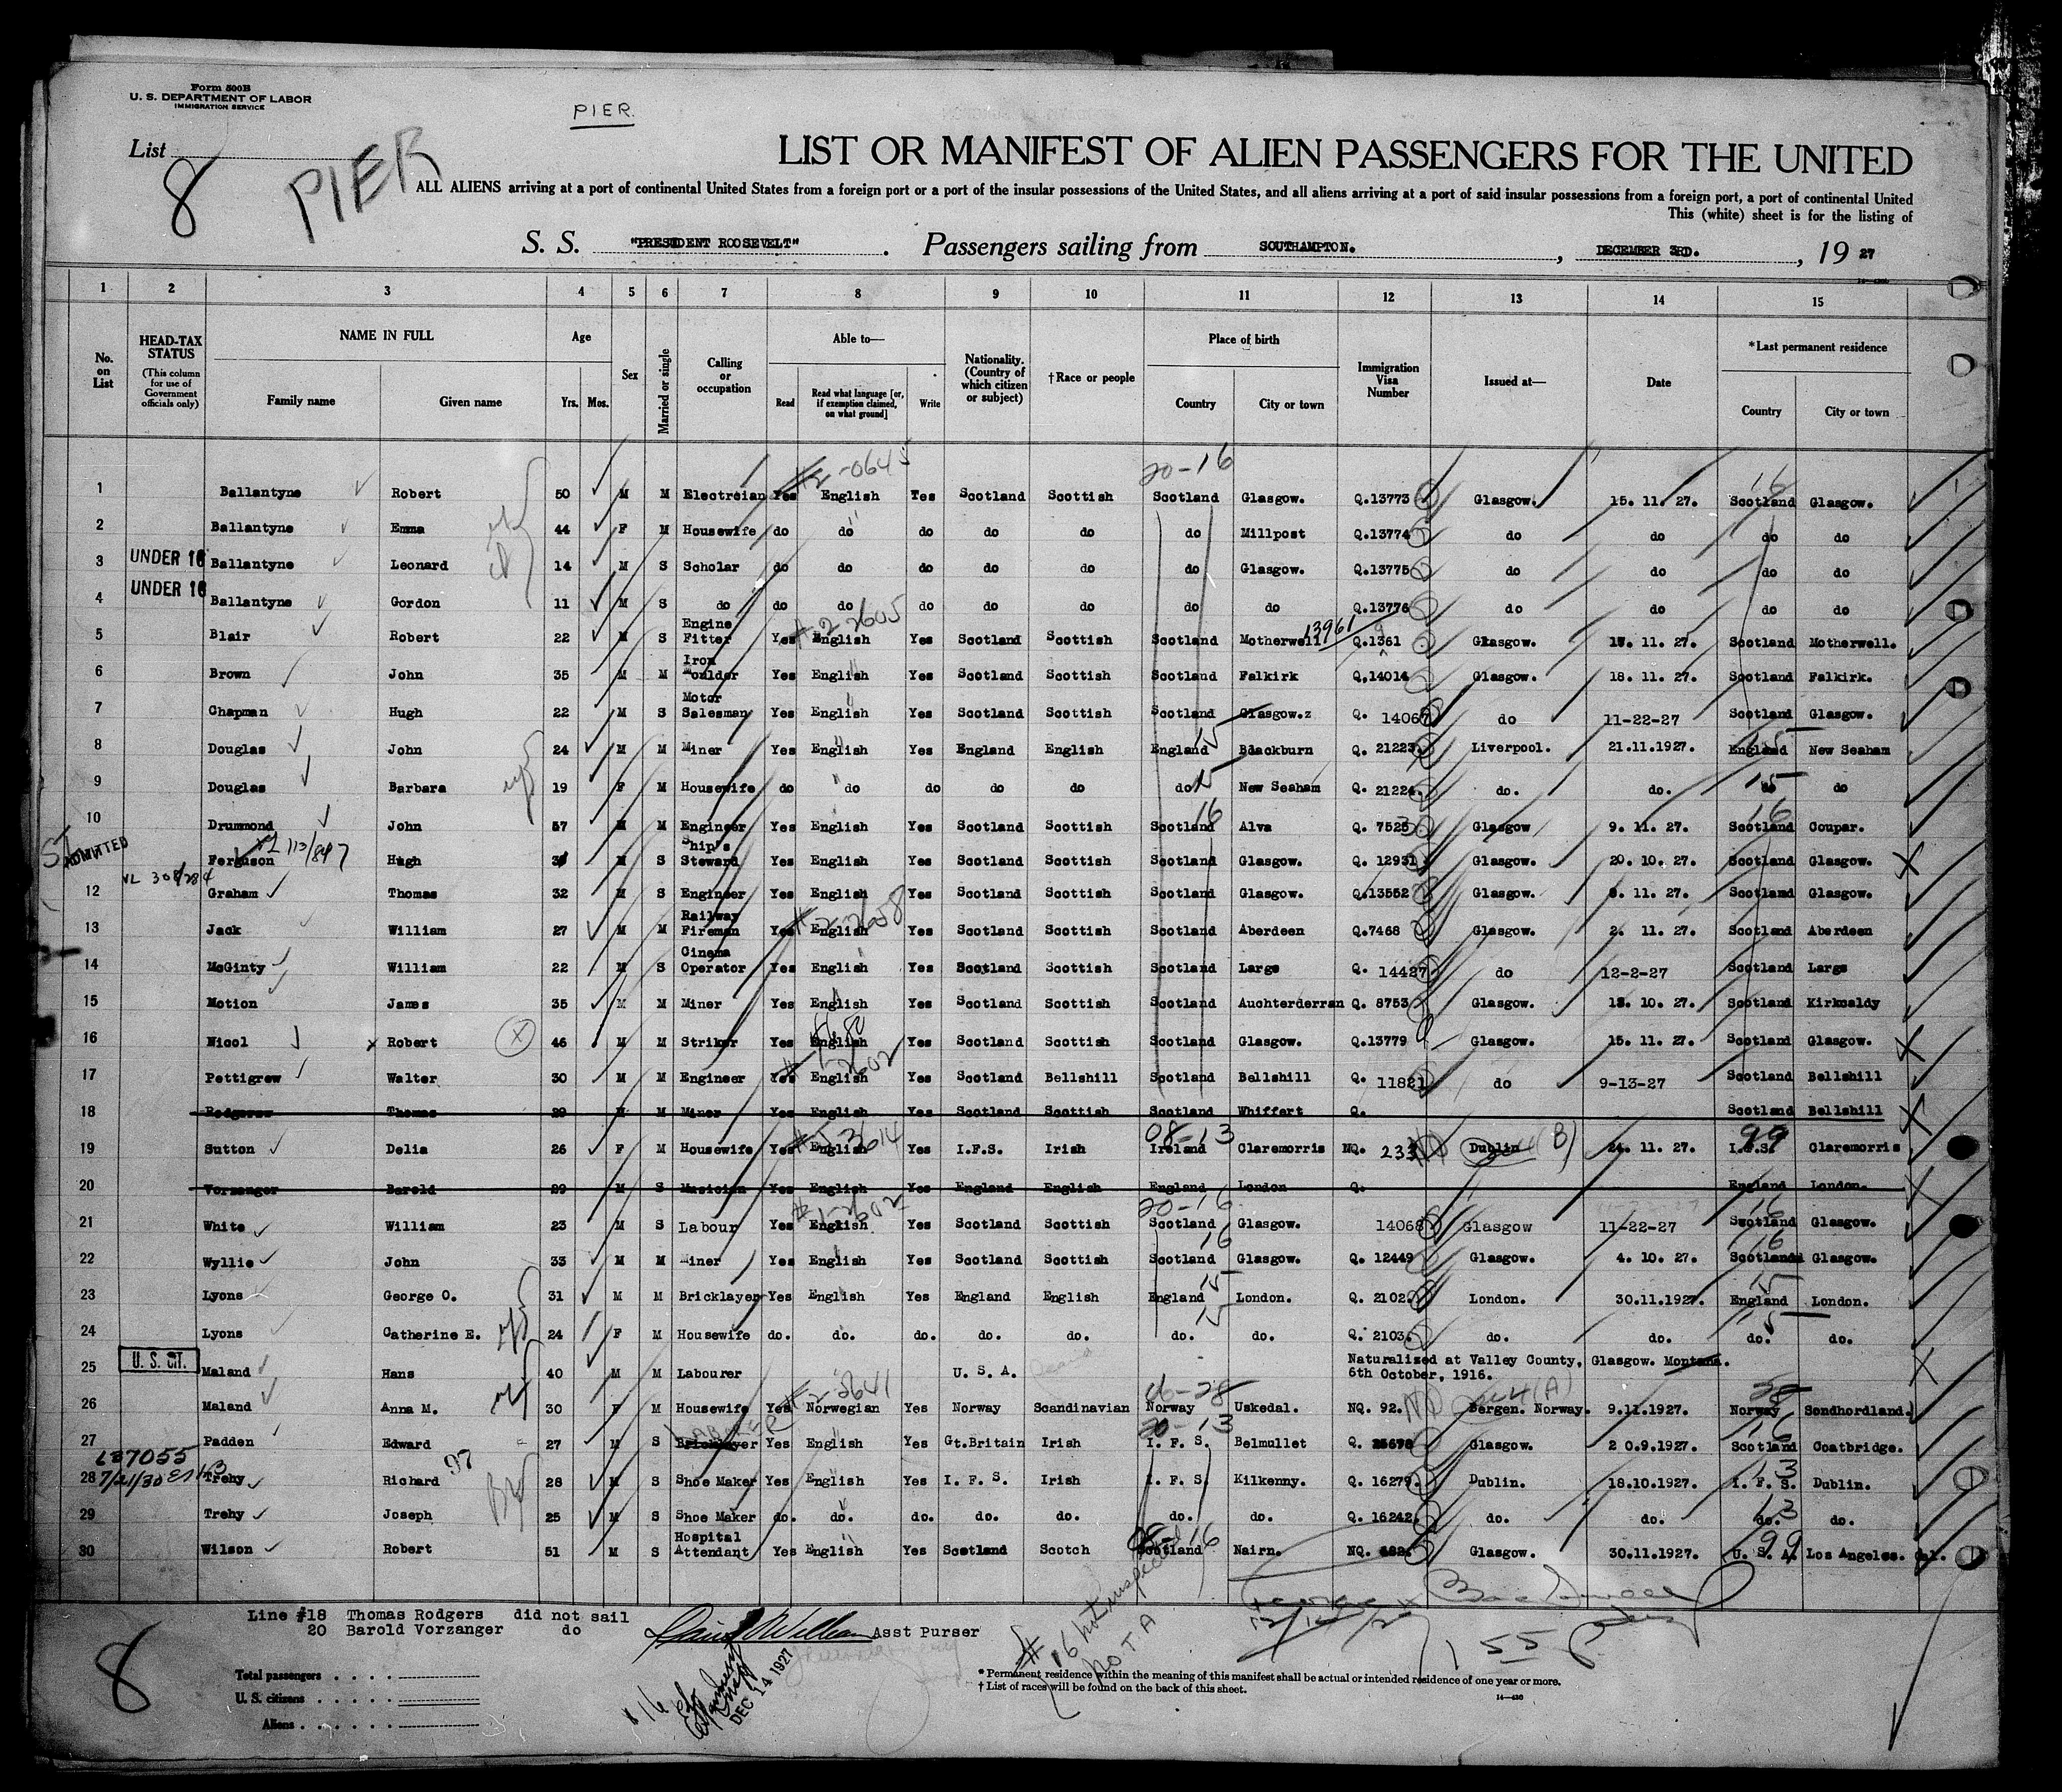 Form 500B
U. S. DEPARTMENT OF LABOR
IMMIGRATION SERVICE
PIER.
List 8
PIER
LIST OR MANIFEST OF ALIEN PASSENGERS FOR THE UNITED
ALL ALIENS arriving at a port of continental United States from a foreign port or a port of the insular possessions of the United States, and all aliens arriving at a port of said insular possessions from a foreign port, a port of continental United
This (white) sheet is for the listing of
S. S. "PRESIDENT ROOSEVELT". Passengers sailing from SOUTHAMPTON., DECEMBER 3RD., 19 27
1 2 3 4 5 6 7 8 9 10 11 12 13 14 15
No. on List
HEAD-TAX STATUS (This column for use of Government officials only)
NAME IN FULL Family name Given name
Age Yrs. Mos.
Sex
Married or single
Calling or occupation
Able to— Read Read what language [or, if exemption claimed, on what ground] Write
Nationality. (Country of which citizen or subject)
†Race or people
Place of birth Country City or town
Immigration Visa Number
Issued at—
Date
*Last permanent residence Country City or town
1 Ballantyne Robert 50 M M Electrcian Yes English Yes Scotland Scottish Scotland Glasgow. Q.13773 Glasgow. 15. 11. 27. Scotland Glasgow.
2 Ballantyne Emma 44 F M Housewife do do do do do do Millpost Q.13774 do do do do
3 UNDER 16 Ballantyne Leonard 14 M S Scholar do do do do do do Glasgow. Q.13775 do do do do
4 UNDER 16 Ballantyne Gordon 11 M S do do do do do do do do Q.13776 do do do do
5 Blair Robert 22 M S Engine Fitter Yes English Yes Scotland Scottish Scotland Motherwell 13961 Q.1361 Glasgow. 17. 11. 27. Scotland Motherwell.
6 Brown John 35 M M Iron Moulder Yes English Yes Scotland Scottish Scotland Falkirk Q.14014 Glasgow. 18. 11. 27. Scotland Falkirk.
7 Chapman Hugh 22 M S Motor Salesman Yes English Yes Scotland Scottish Scotland Glasgow.z Q. 14067 do 11-22-27 Scotland Glasgow.
8 Douglas John 24 M M Miner Yes English Yes England English England Blackburn Q. 21223. Liverpool. 21.11.1927. England New Seaham
9 Douglas Barbara 19 F M Housewife do do do do do do New Seaham Q. 21224. do. do. do do
10 Drummond John 57 M M Engineer Yes English Yes Scotland Scottish Scotland Alva Q. 7525 Glasgow 9. 11. 27. Scotland Coupar.
ADMITTED Ferguson Hugh M S Ship's Steward Yes English Yes Scotland Scottish Scotland Glasgow. Q. 12931 Glasgow. 20. 10. 27. Scotland Glasgow.
12 Graham Thomas 32 M S Engineer Yes English Yes Scotland Scottish Scotland Glasgow. Q.13552 Glasgow. 11. 27. Scotland Glasgow.
13 Jack William 27 M M Railway Fireman Yes English Yes Scotland Scottish Scotland Aberdeen Q.7468 Glasgow. 2. 11. 27. Scotland Aberdeen
14 McGinty William 22 M S Cinema Operator Yes English Yes Scotland Scottish Scotland Largs Q. 14427 do 12-2-27 Scotland Largs
15 Motion James 35 M M Miner Yes English Yes Scotland Scottish Scotland Auchterderran Q. 8753 Glasgow. 10. 27. Scotland Kirkcaldy
16 Nicol x Robert 46 M M Striker Yes English Yes Scotland Scottish Scotland Glasgow. Q.13779 Glasgow. 15. 11. 27. Scotland Glasgow.
17 Pettigrew Walter 30 M M Engineer Yes English Yes Scotland Bellshill Scotland Bellshill Q. 11821 do 9-13-27 Scotland Bellshill
18 Rodgers Thomas 29 M M Miner Yes English Yes Scotland Scottish Scotland Whiffert Q. Scotland Bellshill
19 Sutton Delia 26 F M Housewife Yes English Yes I.F.S. Irish Ireland Claremorris NQ. 233 Dublin (B) 24. 11. 27. I.F.S. Claremorris
20 Vorzanger Barold 29 M S Musician Yes English Yes England English England London Q. England London.
21 White William 23 M S Labour Yes English Yes Scotland Scottish Scotland Glasgow. 14068 Glasgow 11-22-27 Scotland Glasgow.
22 Wyllie John 33 M M Miner Yes English Yes Scotland Scottish Scotland Glasgow. Q. 12449 Glasgow. 4. 10. 27. Scotland Glasgow.
23 Lyons George O. 31 M M Bricklayer Yes English Yes England English England London. Q. 2102. London. 30.11.1927. England London.
24 Lyons Catherine E. 24 F M Housewife do. do. do. do. do. do. do. Q. 2103. do. do. do. do.
25 U. S. CIT. Maland Hans 40 M M Labourer U. S. A. Naturalized at Valley County, Glasgow. Montana.
6th October, 1916.
26 Maland Anna M. 30 F M Housewife Yes Norwegian Yes Norway Scandinavian Norway Uskedal. NQ. 92. Bergen. Norway. 9.11.1927. Norway Sondhordland.
27 Padden Edward 27 M S Bricklayer LABORER Yes English Yes Gt.Britain Irish I. F. S. Belmullet Q. Glasgow. 2 0.9.1927. Scotland Coatbridge.
28 Trehy Richard 28 M S Shoe Maker Yes English Yes I. F. S. Irish I. F. S. Kilkenny. Q. 16279. Dublin. 18.10.1927. I. F. S. Dublin.
29 Trehy Joseph 25 M S Shoe Maker do. do. do. do. do. do. do. Q. 16242. do. do. do. do.
30 Wilson Robert 51 M S Hospital Attendant Yes English Yes Scotland Scotch Scotland Nairn. NQ. Glasgow. 30.11.1927. U. S. A. Los Angeles. Cal.
Line #18 Thomas Rodgers did not sail
20 Barold Vorzanger do
Asst Purser
8
Total passengers
U. S. citizens
Aliens
DEC 14 1927
* Permanent residence within the meaning of this manifest shall be actual or intended residence of one year or more.
† List of races will be found on the back of this sheet.